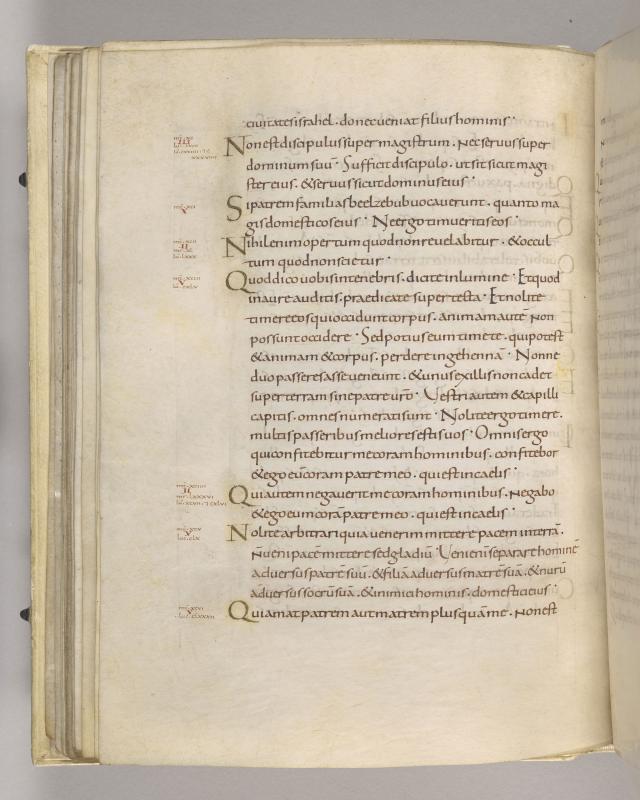 civitates israhel . donec veniat filius hominis .
Non est discipulus super magistrum . Nec servus super
dominum suū . Sufficit discipulo . ut sit sicut magi
ster eius . & servus sicut dominus eius .
Si patrem familias beelzebub vocaverunt . quanto ma
gis domesticos eius . Ne ergo timueritis eos .
Nihil enim opertum quod non revelabitur . & occul
tum quod non scietur .
Quod dico vobis in tenebris . dicite in lumine . Et quod
in aure auditis . praedicate super tecta . Et nolite
timere eos qui occidunt corpus . animam autē non
possunt occidere . Sed potius eum timete . qui potest
& animam & corpus . perdere in gehennā . Nonne
duo passeres asse veneunt . & unus ex illis non cadet
super terram sine patre urō . Vestri autem & capilli
capitis . omnes numerati sunt . Nolite ergo timere .
multis passeribus meliores estis vos . Omnis ergo
qui confitebitur me coram hominibus . confitebor
& ego eū coram patre meo . qui est in caelis .
Qui autem negaverit me coram hominibus . Negabo
& ego eum corā patre meo . qui est in caelis .
Nolite arbitrari quia venerim mittere pacem in terrā .
Nū veni pacē mittere sed gladiū . Veni enī separare hominē
adversus patrē suū . & filiā adversus matrē suā . & nurū
adversus socrū suā . & inimici hominis . domestici eius .
Qui amat patrem aut matrem plus quā me . non est